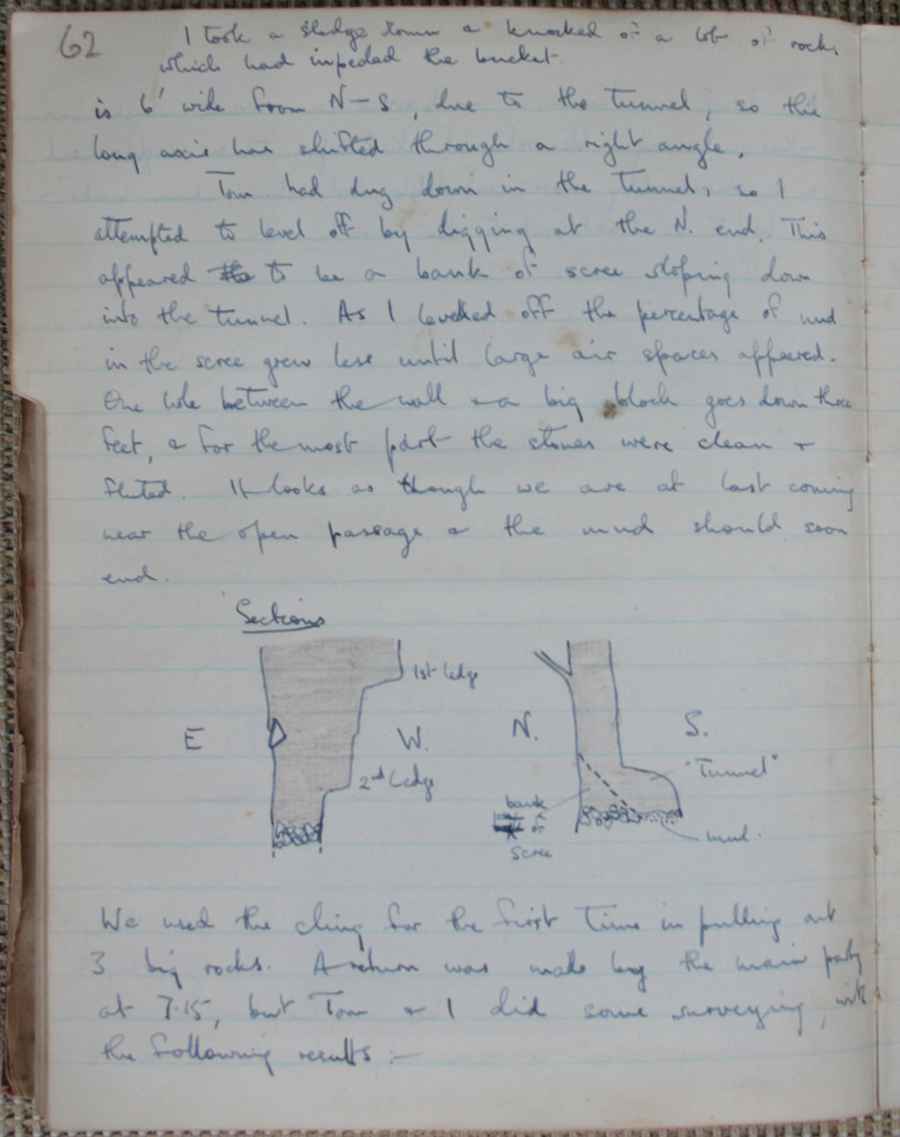 62
I took a sledge down & knocked off a lot of rocks
which had impeded the bucket.
is 6' wide from N-S, due to the tunnel, so the
long axis has shifted through a right angle.
Tom had dug down in the tunnel, so I
attempted to level off by digging at the N. end. This
appeared to be a bank of scree sloping down
into the tunnel. As I levelled off the percentage of mud
in the scree grew less until large air spaces appeared.
One hole between the wall & a big block goes down three
feet, & for the most part the stones were clean &
fluted. It looks as though we are at last coming
near the open passage & the mud should soon
end.
Sections
1st ledge
E
W.
2nd ledge
N.
S.
"Tunnel"
bank
of
scree
mud.
We used the cling for the first time in pulling out
3 big rocks. A return was made by the main party
at 7.15, but Tom & I did some surveying, with
the following results :-